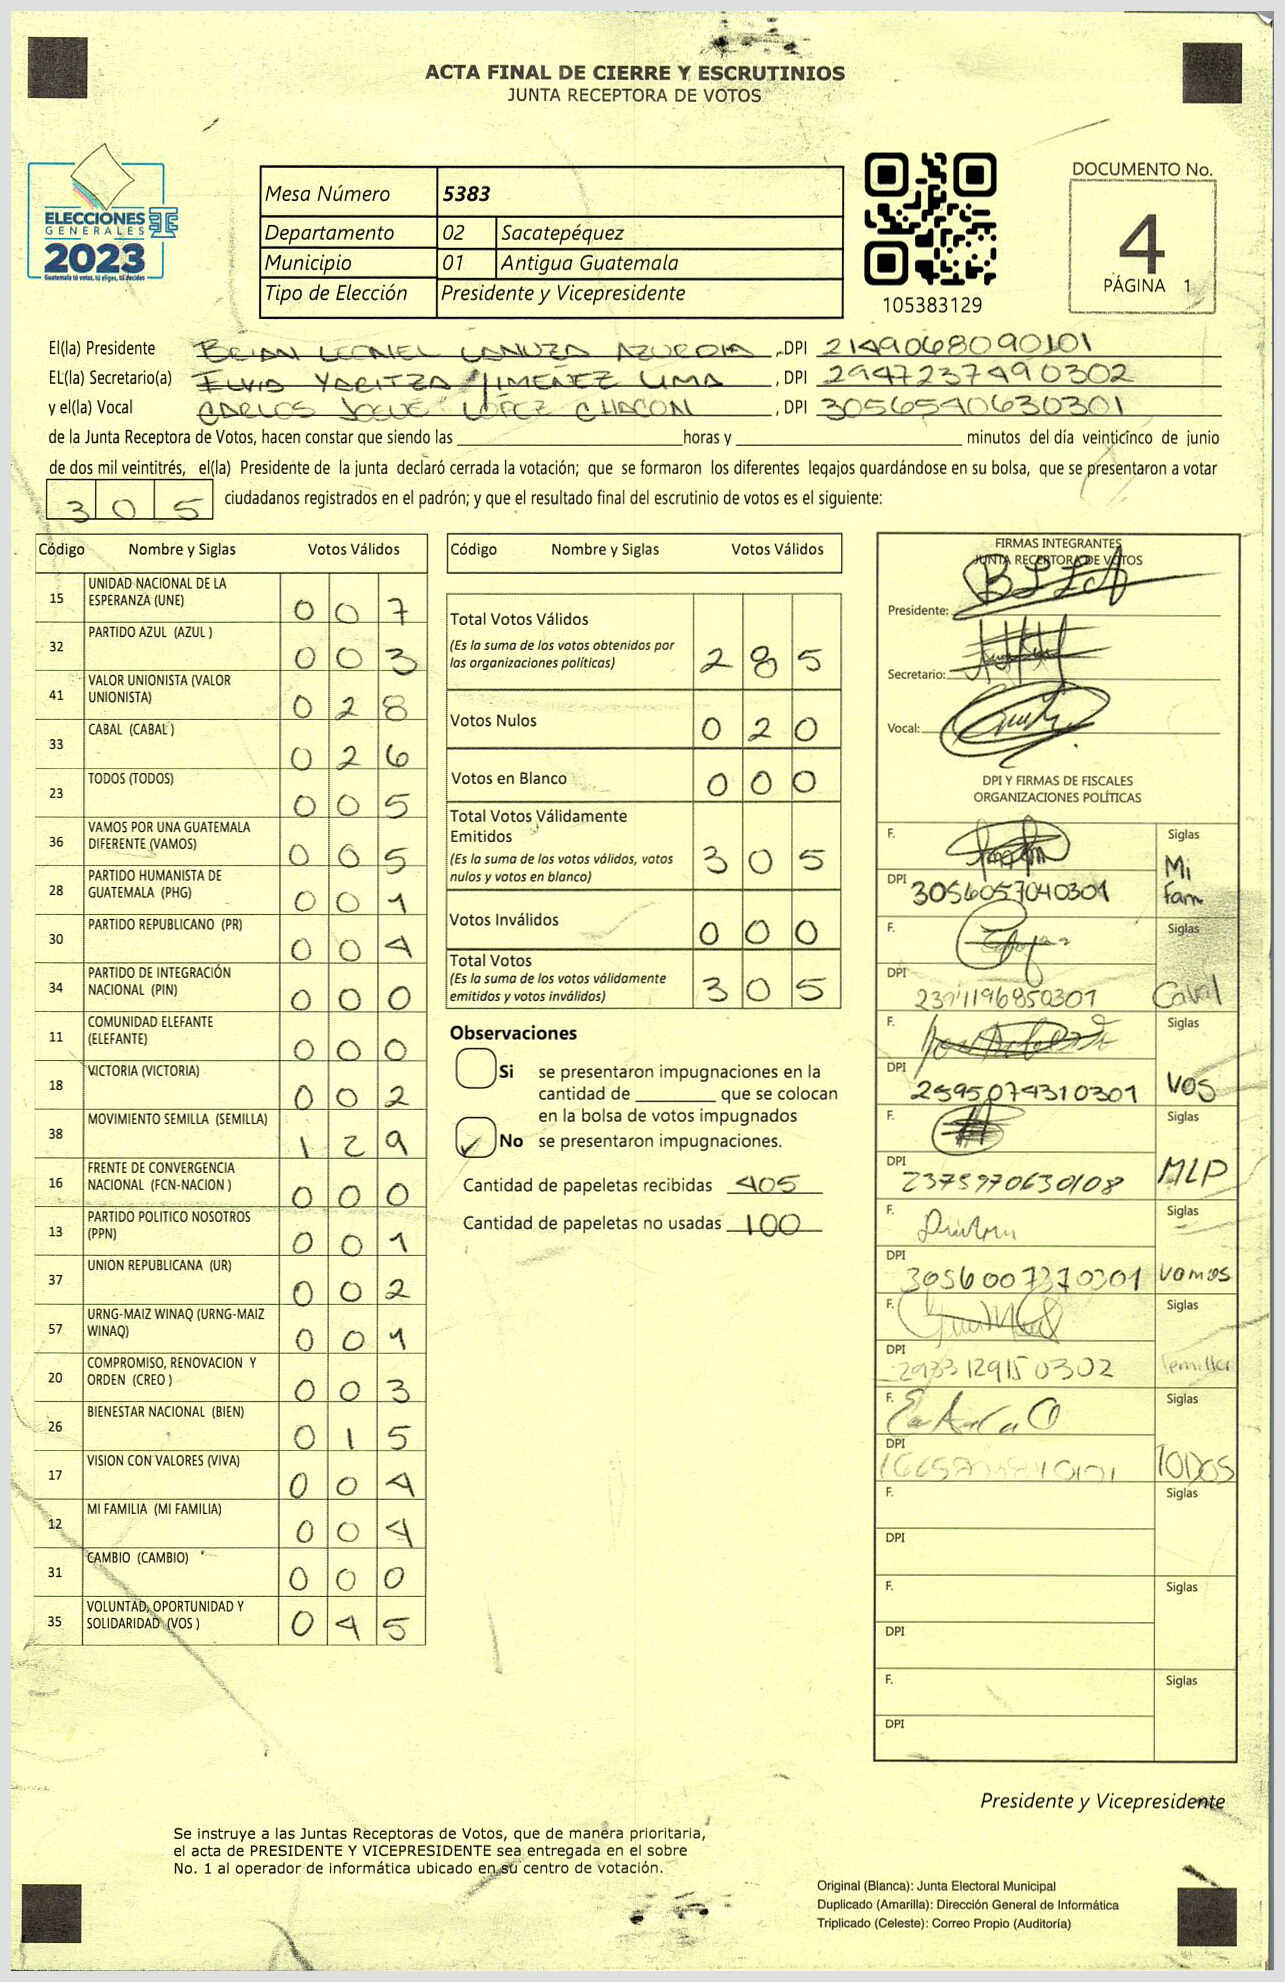 ACTA FINAL DE CIERRE Y ESCRUTINIOS
JUNTA RECEPTORA DE VOTOS
ELECCIONES
GENERALES
2023
Guatemala tú votas, tú eliges, tú decides
Mesa Número 5383
Departamento 02 Sacatepéquez
Municipio 01 Antigua Guatemala
Tipo de Elección Presidente y Vicepresidente
105383129
DOCUMENTO No.
4
PÁGINA 1
El(la) Presidente BRIAN LEONEL LANUZA AZURDIA, DPI 2149068090101
EL(la) Secretario(a) ELVIA YARITZA JIMENEZ LIMA, DPI 2947237490302
y el(la) Vocal CARLOS JOSUÉ LÓPEZ CHACON, DPI 3056540630301
de la Junta Receptora de Votos, hacen constar que siendo las horas y minutos del día veinticinco de junio
de dos mil veintitrés, el(la) Presidente de la junta declaró cerrada la votación; que se formaron los diferentes legajos guardándose en su bolsa, que se presentaron a votar
305 ciudadanos registrados en el padrón; y que el resultado final del escrutinio de votos es el siguiente:
Código Nombre y Siglas Votos Válidos
15 UNIDAD NACIONAL DE LA ESPERANZA (UNE) 007
32 PARTIDO AZUL (AZUL ) 003
41 VALOR UNIONISTA (VALOR UNIONISTA) 028
33 CABAL (CABAL ) 026
23 TODOS (TODOS) 005
36 VAMOS POR UNA GUATEMALA DIFERENTE (VAMOS) 005
28 PARTIDO HUMANISTA DE GUATEMALA (PHG) 001
30 PARTIDO REPUBLICANO (PR) 004
34 PARTIDO DE INTEGRACIÓN NACIONAL (PIN) 000
11 COMUNIDAD ELEFANTE (ELEFANTE) 000
18 VICTORIA (VICTORIA) 002
38 MOVIMIENTO SEMILLA (SEMILLA) 129
16 FRENTE DE CONVERGENCIA NACIONAL (FCN-NACION ) 000
13 PARTIDO POLITICO NOSOTROS (PPN) 001
37 UNION REPUBLICANA (UR) 002
57 URNG-MAIZ WINAQ (URNG-MAIZ WINAQ) 001
20 COMPROMISO, RENOVACION Y ORDEN (CREO ) 003
26 BIENESTAR NACIONAL (BIEN) 015
17 VISION CON VALORES (VIVA) 004
12 MI FAMILIA (MI FAMILIA) 004
31 CAMBIO (CAMBIO) 000
35 VOLUNTAD, OPORTUNIDAD Y SOLIDARIDAD (VOS ) 045
Código Nombre y Siglas Votos Válidos
Total Votos Válidos 285
(Es la suma de los votos obtenidos por
las organizaciones políticas)
Votos Nulos 020
Votos en Blanco 000
Total Votos Válidamente
Emitidos 305
(Es la suma de los votos válidos, votos
nulos y votos en blanco)
Votos Inválidos 000
Total Votos 305
(Es la suma de los votos válidamente
emitidos y votos inválidos)
Observaciones
Si se presentaron impugnaciones en la
cantidad de que se colocan
en la bolsa de votos impugnados
No se presentaron impugnaciones.
Cantidad de papeletas recibidas 405
Cantidad de papeletas no usadas 100
FIRMAS INTEGRANTES
JUNTA RECEPTORA DE VOTOS
Presidente:
Secretario:
Vocal:
DPI Y FIRMAS DE FISCALES
ORGANIZACIONES POLÍTICAS
F. Siglas
DPI 3056057040301 Mi Fam
F. Siglas
DPI 2391196850301 Caval
F. Siglas
DPI 2595074310301 VOS
F. Siglas
DPI 2375970630108 MLP
F. Siglas
DPI 3056007370301 Vamos
F. Siglas
DPI 2933129150302 Semilla
F. Siglas
DPI TODOS
F. Siglas
DPI
F. Siglas
DPI
F. Siglas
DPI
Presidente y Vicepresidente
Se instruye a las Juntas Receptoras de Votos, que de manera prioritaria,
el acta de PRESIDENTE Y VICEPRESIDENTE sea entregada en el sobre
No. 1 al operador de informática ubicado en su centro de votación.
Original (Blanca): Junta Electoral Municipal
Duplicado (Amarilla): Dirección General de Informática
Triplicado (Celeste): Correo Propio (Auditoría)